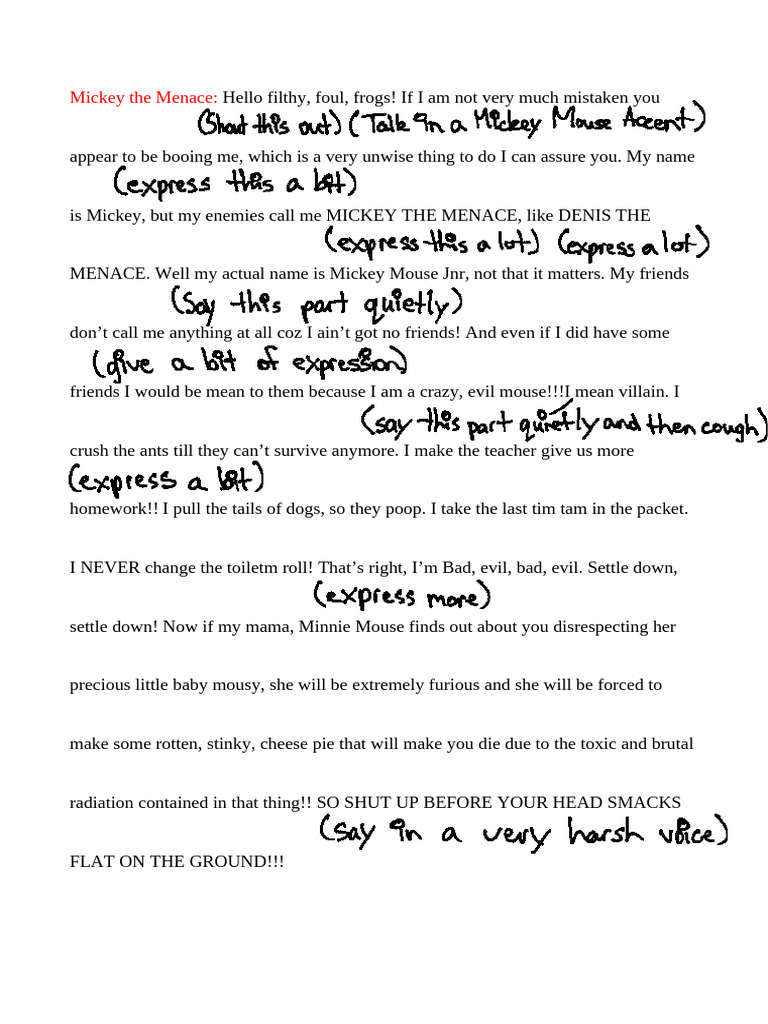 Mickey the Menace: Hello filthy, foul, frogs! If I am not very much mistaken you
(Shout this out) (Talk in a Mickey Mouse Accent)
appear to be booing me, which is a very unwise thing to do I can assure you. My name
(express this a bit)
is Mickey, but my enemies call me MICKEY THE MENACE, like DENIS THE
(express this a lot) (express a lot)
MENACE. Well my actual name is Mickey Mouse Jnr, not that it matters. My friends
(Say this part quietly)
don't call me anything at all coz I ain't got no friends! And even if I did have some
(give a bit of expression)
friends I would be mean to them because I am a crazy, evil mouse!!!I mean villain. I
(say this part quietly and then cough)
crush the ants till they can't survive anymore. I make the teacher give us more
(express a bit)
homework!! I pull the tails of dogs, so they poop. I take the last tim tam in the packet.
I NEVER change the toiletm roll! That's right, I'm Bad, evil, bad, evil. Settle down,
(express more)
settle down! Now if my mama, Minnie Mouse finds out about you disrespecting her
precious little baby mousy, she will be extremely furious and she will be forced to
make some rotten, stinky, cheese pie that will make you die due to the toxic and brutal
radiation contained in that thing!! SO SHUT UP BEFORE YOUR HEAD SMACKS
(say in a very harsh voice)
FLAT ON THE GROUND!!!